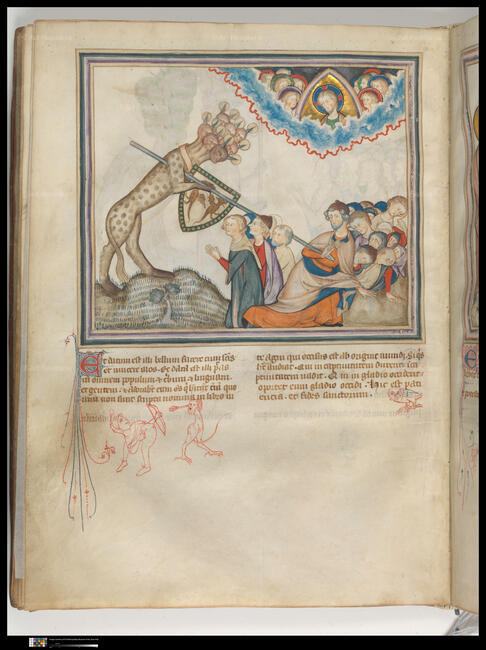 Et datum est illi bellum facere cum scis
et vincere illos. Et data est illi ptas
in omnem populum et tribum et linguam
et gentem. et adorabunt eum oms qui
rum non sunt scripta nomina in libro vi
te Agni qui occisus est ab origine mundi. Si qs
ht audiat. Qui in captivitatem duxerit in ca
ptivitatem vadit. Qui in gladio occiderit
oportet eum gladio occidi. hic est paci
encia. et fides sanctorum.